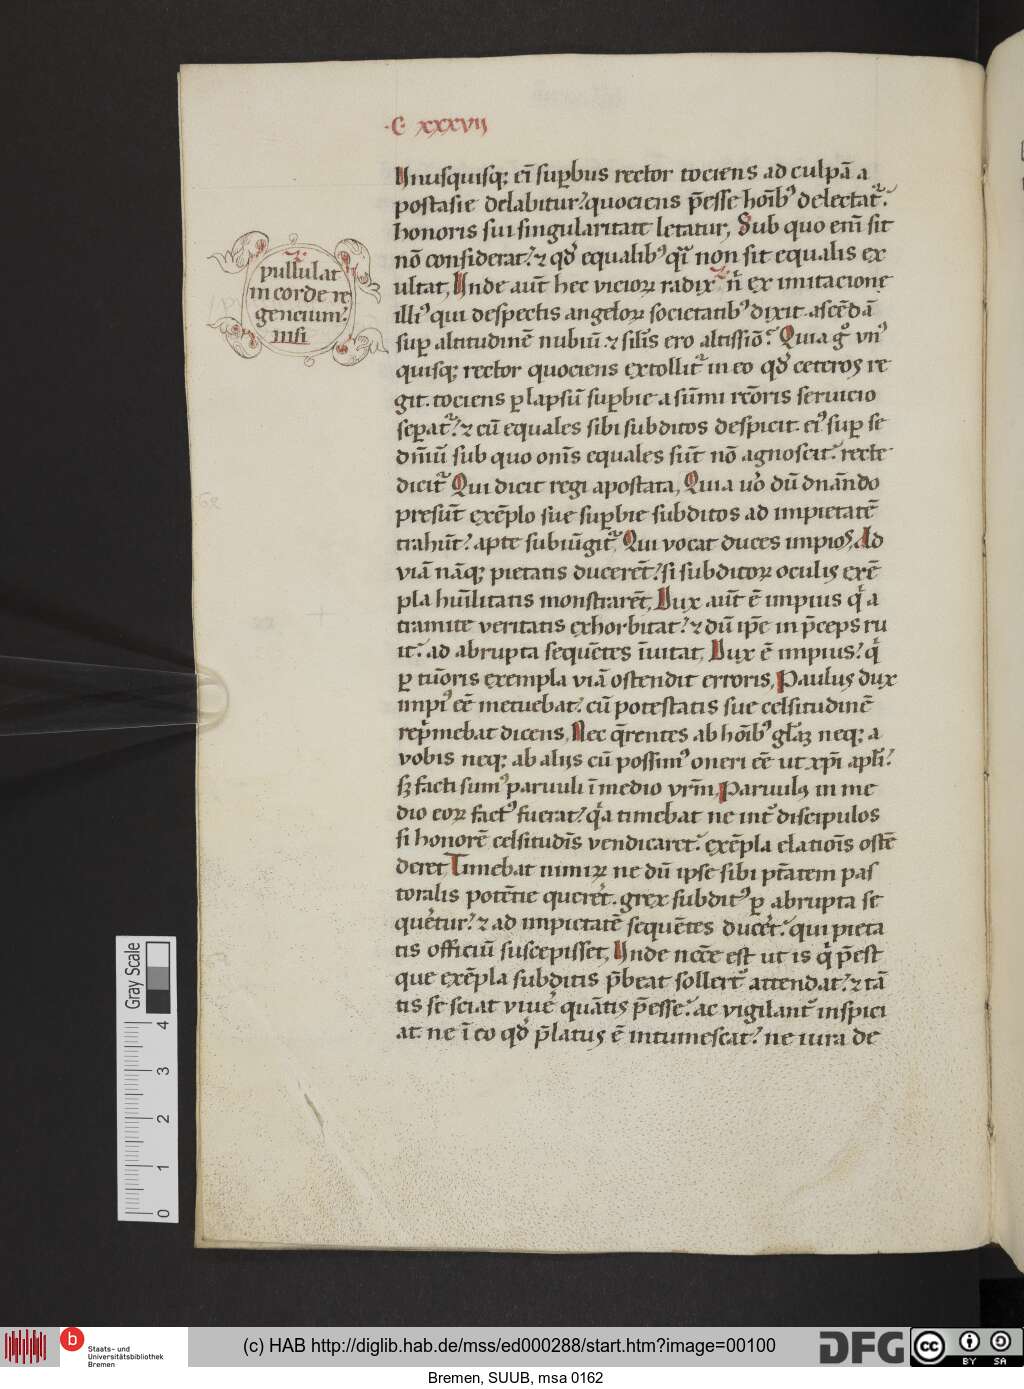 ·C· xxxvij
Unusquisq; eī sup̄bus rector tociens ad culpā a
postasie delabitur? quociens p̄esse hoīb⁹ delectat᷑.
honoris sui singularitate letatur, Sub quo enī sit
nō considerat? ⁊ qđ equalib⁹ q̄i non sit equalis ex
ultat, Unde aūt hec vicioꝝ radix
pullulat
in corde re
gencium?
nisi
ex imitacione
illi⁹ qui despectis angeloꝝ societatib⁹ dixit. ascēdā
sup̄ altitudinē nubiū. ⁊ sil̄is ero altissiō. Quia gͦ vn⁹
quisq; rector quociens extollit᷑ in eo qđ ceteros re
git. tociens ꝑ lapsū sup̄bie a sūmi rc̄oris seruicio
sep̄at᷑? ⁊ cū equales sibi subditos despicit. ei⁹ sup̄ se
dn̄iū sub quo om̄s equales sūt nō agnoscit. recte
dicit᷑ Qui dicit regi apostata, Quia u̾o dū dnāndo
presūt exēplo sue sup̄bie subditos ad impietatē
trahūt? apte subiūgit᷑, Qui vocat duces impios, Ad
viā nāq; pietatis ducerēt? si subditoꝝ oculis exē
pla hūilitatis monstrarēt, Dux aūt ē impius qͥ a
tramite veritatis exhorbitat? ⁊ dū ip̄e in p̄ceps ru
it. ad abrupta sequētes īuitat, Dux ē impius? qͥ
ꝑ tūoris exempla viā ostendit erroris, Paulus dux
impi⁹ eē metuebat. cū potestatis sue celsitudinē
rep̄mebat dicens, Nec q̄rentes ab hoīb⁹ gl̄iaꝫ neq; a
vobis neq; ab alijs cū possim⁹ oneri eē ut xp̄i apl̄i?
sꝫ facti sum⁹ paruuli ī medio vr̄m, Paruulus in me
dio eoꝝ fact⁹ fuerat? qͥa timebat ne int̾ discipulos
si honorē celsitudīs vendicaret. exēpla elatiōis ostē
deret Timebat nimiꝝ ne dū ipse sibi pt̄atem pas
toralis potētie quereret. grex subdit⁹ ꝑ abrupta se
queretur? ⁊ ad impietatē sequētes duceret. qui pieta
tis officiū suscepisset, Unde necc̄e est ut is qͥ p̄est
que exēpla subditis p̄beat sollert̾ attendat? ⁊ tā
tis se sciat viue̾ quātis p̄esse. ac vigilant̾ inspici
at. ne ī eo qđ p̄latus ē intumescat? ne iura de
Gray Scale
4
3
2
1
0
b
Staats- und
Universitätsbibliothek
Bremen
(c) HAB http://diglib.hab.de/mss/ed000288/start.htm?image=00100
DFG
cc
BY SA
Bremen, SUUB, msa 0162